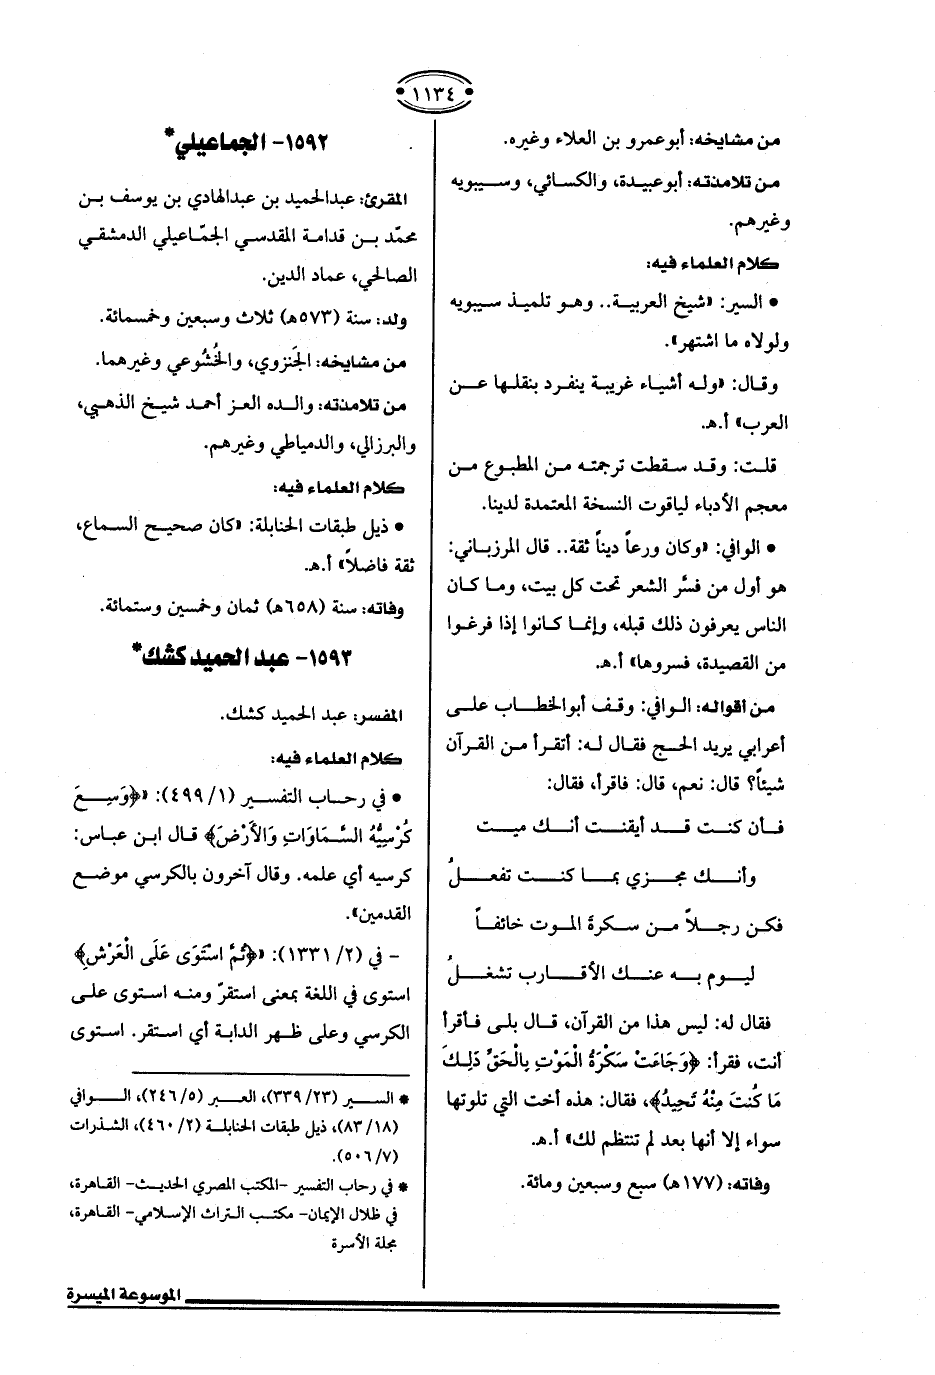 ١١٣٤
من مشايخه: أبو عمرو بن العلاء وغيره.
من تلامذته: أبو عبيدة، والكسائي، وسيبويه
وغيرهم.
كلام العلماء فيه:
• السير: «شيخ العربية.. وهو تلميذ سيبويه
ولولاه ما اشتهر».
وقال: «وله أشياء غريبة ينفرد بنقلها عن
العرب» أ.هـ.
قلت: وقد سقطت ترجمته من المطبوع من
معجم الأدباء لياقوت النسخة المعتمدة لدينا.
• الوافي: «وكان ورعاً ديناً ثقة.. قال المرزباني:
هو أول من فسَّر الشعر تحت كل بيت، وما كان
الناس يعرفون ذلك قبله، وإنما كانوا إذا فرغوا
من القصيدة، فسروها» أ.هـ.
من أقواله: الوافي: وقف أبو الخطاب على
أعرابي يريد الحج فقال له: أتقرأ من القرآن
شيئاً؟ قال: نعم، قال: فاقرأ، فقال:
فأن كنت قد أيقنت أنك ميت
وأنك مجزي بما كنت تفعلُ
فكن رجلاً من سكرةَ الموت خائفاً
ليوم به عنك الأقارب تشغلُ
فقال له: ليس هذا من القرآن، قال بلى فأقرأ
أنت، فقرأ: ﴿وَجَاءَتْ سَكْرَةُ الْمَوْتِ بِالْحَقِّ ذَلِكَ
مَا كُنتَ مِنْهُ تَحِيدُ﴾، فقال: هذه أخت التي تلوتها
سواء إلا أنها بعد لم تنتظم لك» أ.هـ.
وفاته: (١٧٧هـ) سبع وسبعين ومائة.
١٥٩٢- الجماعيلي*
المقرئ: عبد الحميد بن عبد الهادي بن يوسف بن
محمّد بن قدامة المقدسي الجمّاعيلي الدمشقي
الصالحي، عماد الدين.
ولد: سنة (٥٧٣هـ) ثلاث وسبعين وخمسمائة.
من مشايخه: الجَنزوي، والخُشُوعي وغيرهما.
من تلامذته: والده العز أحمد شيخ الذهبي،
والبرزالي، والدمياطي وغيرهم.
كلام العلماء فيه:
• ذيل طبقات الحنابلة: «كان صحيح السماع،
ثقة فاضلاً» أ.هـ.
وفاته: سنة (٦٥٨هـ) ثمان وخمسين وستمائة.
١٥٩٣- عبد الحميد كشك*
المفسر: عبد الحميد كشك.
كلام العلماء فيه:
• في رحاب التفسير (١/ ٤٩٩): «﴿وَسِعَ
كُرْسِيُّهُ السَّمَاوَاتِ وَالأَرْضَ﴾ قال ابن عباس:
كرسيه أي علمه. وقال آخرون بالكرسي موضع
القدمين».
- في (٢/ ١٣٣١): «﴿ثُمَّ اسْتَوَى عَلَى الْعَرْشِ﴾
استوى في اللغة بمعنى استقرّ ومنه استوى على
الكرسي وعلى ظهر الدابة أي استقر. استوى
* السير (٢٣/ ٣٣٩)، العبر (٥/ ٢٤٦)، الوافي
(١٨/ ٨٣)، ذيل طبقات الحنابلة (٢/ ٤٦٠)، الشذرات
(٧/ ٥٠٦).
* في رحاب التفسير -المكتب المصري الحديث- القاهرة،
في ظلال الإيمان- مكتب التراث الإسلامي- القاهرة،
مجلة الأسرة
الموسوعة الميسرة